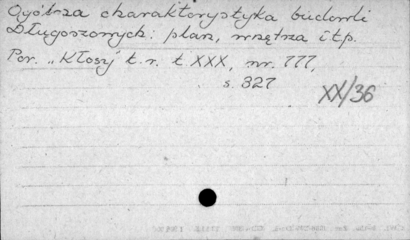 Ogólna charakterystyka budowli
Długoszowych: plan, wnętrza itp.
Por. „Kłosy" t.r. t. XXX, nr. 777,
s. 327
XX/36